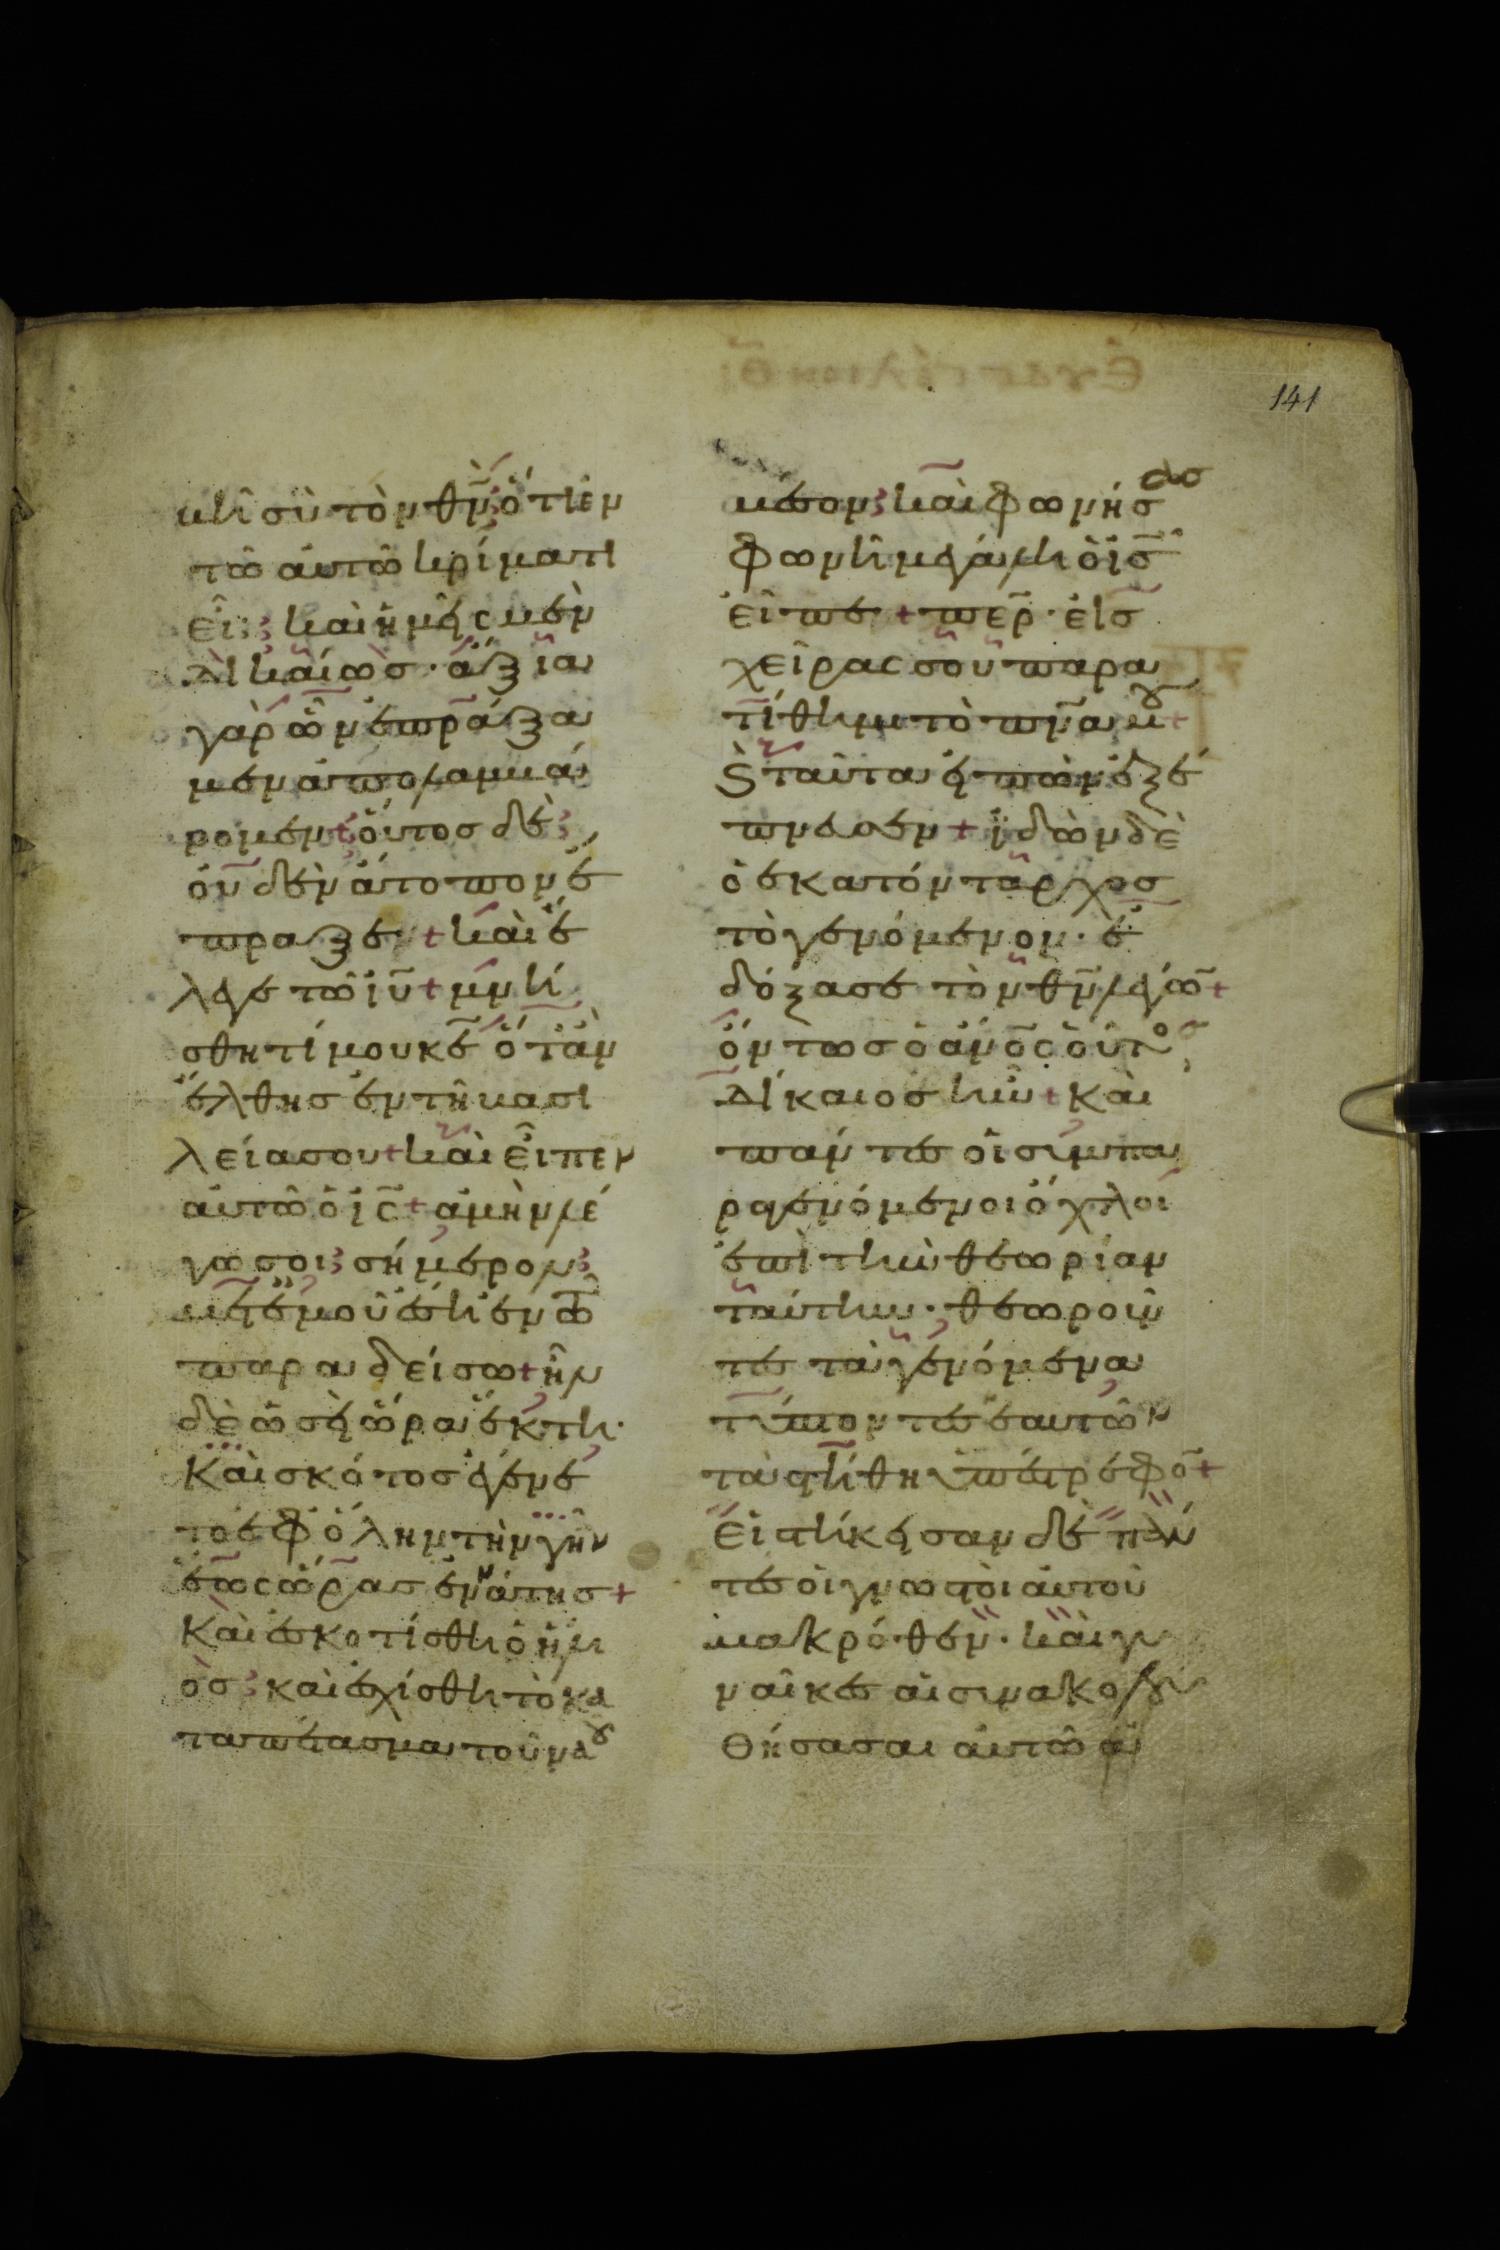 141
βῆ σὺ τὸν θ̅ν̅· ὅτι ἐν
τῶ αὐτῶ κρίματι
εἶ; καὶ ἡμεῖς μὲν
δικαίως· ἄξια
γὰρ ὧν ἐπράξα
μεν ἀπολαμβά
ρομεν+ οὗτος δὲ
οὐδὲν ἄτοπον ἔ
πραξεν+ καὶ ἔ
λεγε τῶ ι̅υ̅+ μνή
σθητί μου κ̅ε̅ ὅταν
ἔλθης ἐν τῆ βασι
λεία σου+ καὶ εἶπεν
αὐτῶ ὁ ι̅ς̅+ ἀμὴν λέ
γω σοι· σήμερον
μετ' ἐμοῦ ἔση ἐν τῶ
παραδείσω+ ἦν
δὲ ὡσεὶ ὥρα ἕκτη·
Καὶ σκότος ἐγένε
το ἐφ' ὅλην τὴν γῆν
ἕως ὥρας ἐννάτης+
Καὶ ἐσκοτίσθη ὁ ἥλι
ος· καὶ ἐσχίσθη τὸ κα
ταπέτασμα τοῦ ναοῦ
μέσον· καὶ φωνήσας
φωνῆ μεγάλη ὁ ι̅ς̅
εἶπε+ π̅ε̅ρ̅· εἰς
χεῖρας σου παρα
τίθημι τὸ π̅ν̅α̅ μου+
Ϛ ταῦτα εἰπὼν ἐξέ
πνευσεν+ ἰδὼν δὲ
ὁ ἑκατόνταρχος
τὸ γενόμενον· ἐ
δόξασε τὸν θ̅ν̅ λέγω̅+
ὄντως ὁ ἄν̅ο̅ς̅ οὗτος
Δίκαιος ἦν+ Καὶ
πάντες οἱ συμπα
ραγενόμενοι ὄχλοι
ἐπὶ τὴν θεωρίαν
ταύτην· θεωροῦν
τες τὰ γενόμενα
τύπτοντες ἑαυτῶν
τὰ στήθη ὑπέστρεφο̅+
Εἱστήκεισαν δὲ πάν
τες οἱ γνωστοὶ αὐτοῦ
μακρόθεν· καὶ γυ
ναῖκες αἱ συνακολου
θήσασαι αὐτῶ ἀ